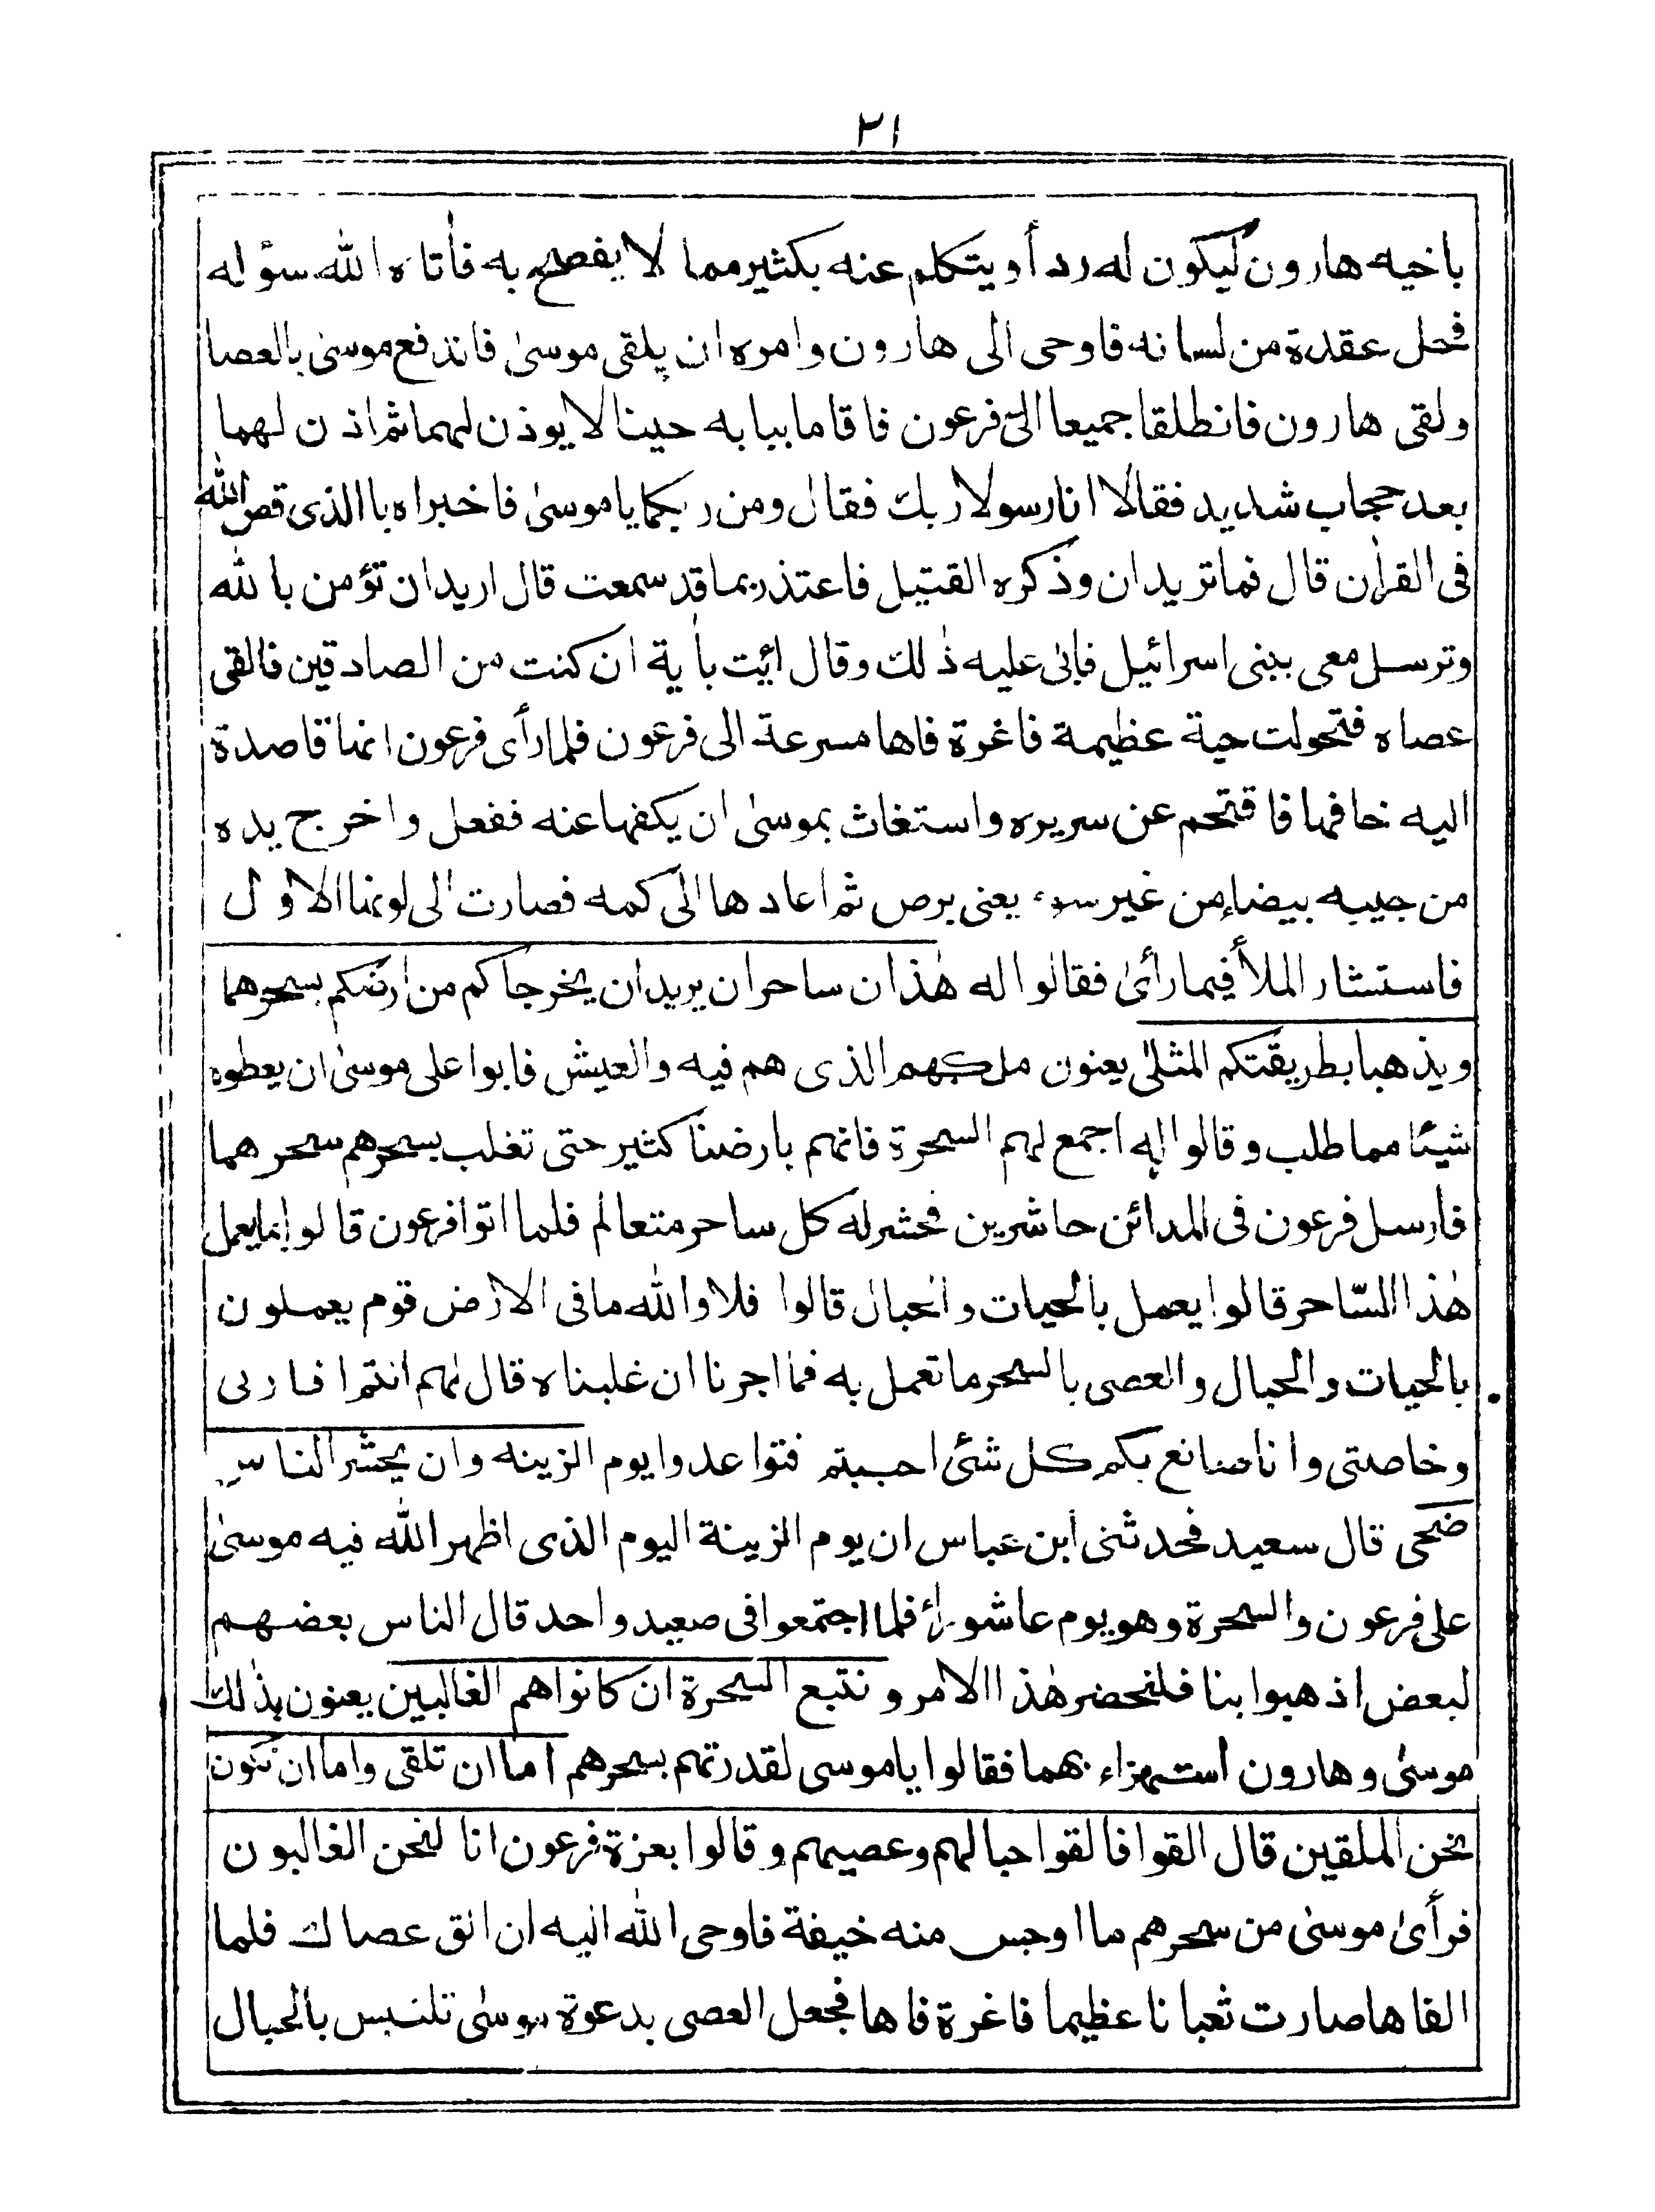 ٢١
باخيه هارون ليكون له ردأ ويتكلم عنه بكثير مما لا يفصح به فأتاه الله سؤله
فحل عقدة من لسانه فاوحى الى هارون وامره ان يلقى موسىٰ فاندفع موسىٰ بالعصا
ولقى هارون فانطلقا جميعا الىٰ فرعون فاقاما ببابه حينا لا يوذن لهما ثم اذن لهما
بعد حجاب شديد فقالا انا رسولا ربك فقال ومن ربكما يا موسىٰ فاخبراه باالذى قص الله
فى القرأن قال فما تريدان وذكره القتيل فاعتذر بما قد سمعت قال اريد ان تؤمن بالله
وترسل معى بنى اسرائيل فابىٰ عليه ذٰلك وقال ائيت بأية ان كنت من الصادقين فالقى
عصاه فتحولت حية عظيمة فاغرة فاها مسرعة الى فرعون فلما رأى فرعون انها قاصدة
اليه خافها فاقتحم عن سريره واستغاث بموسىٰ ان يكفها عنه ففعل واخرج يده
من جيبه بيضاء من غير سوء يعنى برص ثم اعادها الىٰ كمه فصارت الى لونها الاول
فاستشار الملأ فيما رأىٰ فقالوا له هٰذان ساحران يريدان يخرجاكم من ارضكم بسحرهما
ويذهبا بطريقتكم المثلىٰ يعنون ملكهم الذى هم فيه والعيش فابوا على موسىٰ ان يعطوه
شيئا مما طلب وقالوا له اجمع لهم السحرة فانهم بارضنا كثير حتى تغلب بسحرهم سحرهما
فأرسل فرعون فى المدائن حاشرين فحشر له كل ساحر متعالم فلما اتوا فرعون قالوا بما يعمل
هٰذا السّاحر قالوا يعمل بالحيات والحبال قالوا فلا والله ما فى الارض قوم يعملون
بالحيات والحبال والعصى بالسحر ما تعمل به فما اجرنا ان غلبناه قال لهم انتم اقاربى
وخاصتى وانا صانع بكم كل شئى احببتم فتواعدوا يوم الزينه وان يحشر الناس
ضحى قال سعيد فحدثنى ابن عباس ان يوم الزينة اليوم الذى اظهر الله فيه موسىٰ
على فرعون والسحرة وهو يوم عاشوراء فلما اجتمعوا فى صعيد واحد قال الناس بعضهم
لبعض اذهبوا بنا فلنحضر هٰذا الامر ونتبع السحرة ان كانوا هم الغالبين يعنون بذٰلك
موسىٰ وهارون استهزاء بهما فقالوا يا موسى لقدرتهم بسحرهم اما ان تلقى واما ان نكون
نحن الملقين قال القوا فالقوا حبالهم وعصيهم وقالوا بعزة فرعون انا لنحن الغالبون
فرأىٰ موسىٰ من سحرهم ما اوجس منه خيفة فاوحى الله اليه ان الق عصاك فلما
القاها صارت ثعبانا عظيما فاغرة فاها فجعل العصى بدعوة موسىٰ تلتبس بالحبال